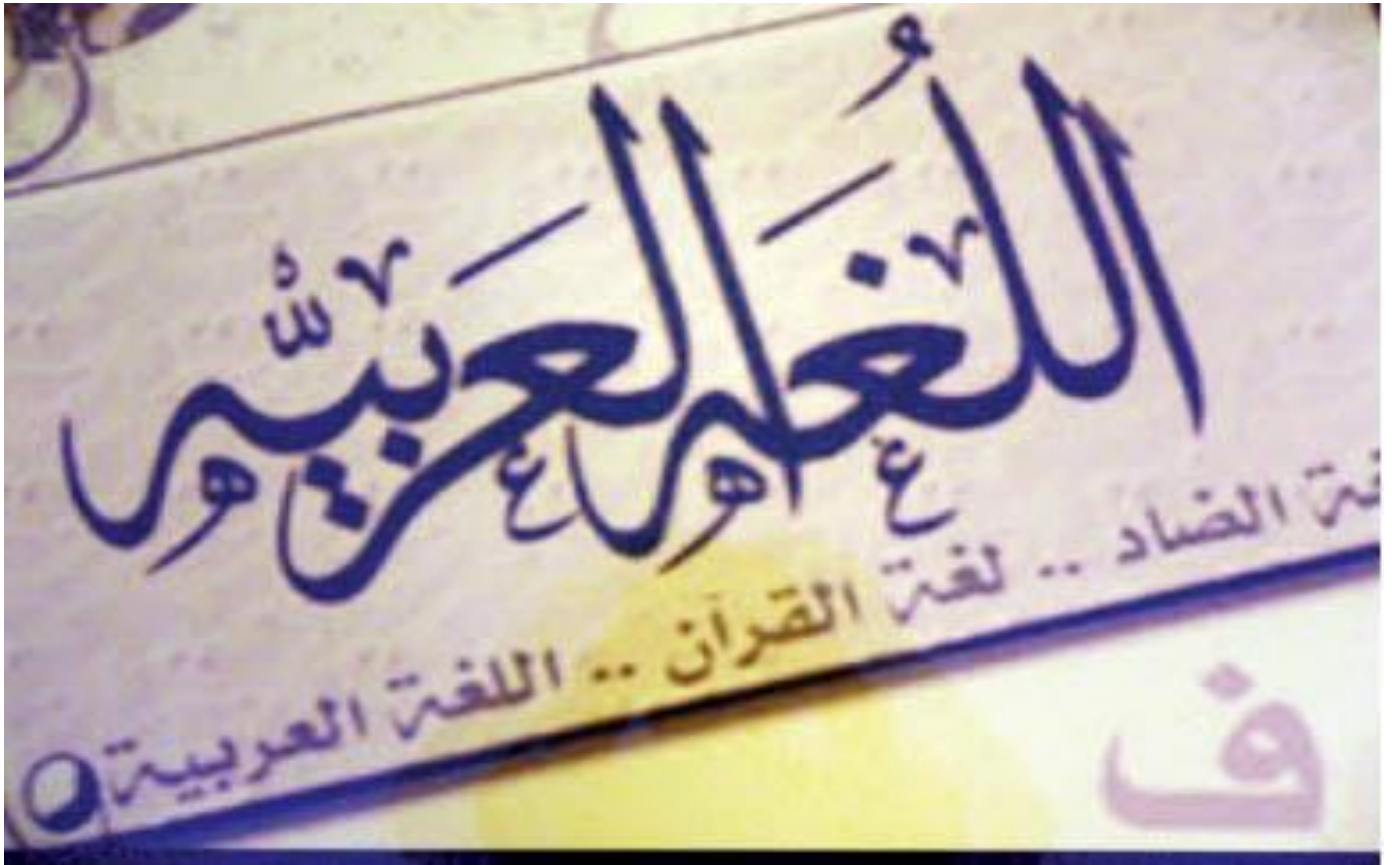 اللُغَه العَربيّه
لغة الضاد .. لغة القرآن .. اللغة العربية
ف